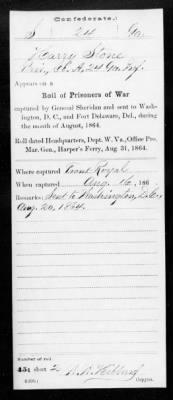 Confederate.
S 24 Ga.
Harry Stone
Pvt., Co. A, 24 Ga. Inf.
Appears on a
Roll of Prisoners of War
captured by General Sheridan and sent to Wash-
ington, D. C., and Fort Delaware, Del., during
the month of August, 1864.
Roll dated Headquarters, Dept. W. Va., Office Pro.
Mar. Gen., Harper's Ferry, Aug. 31, 1864.
Where captured Front Royal
When captured Aug. 16, 186
Remarks: Sent to Washington, D.C.,
Aug. 20, 1864.
Number of roll
451 sheet 2
Copyist.